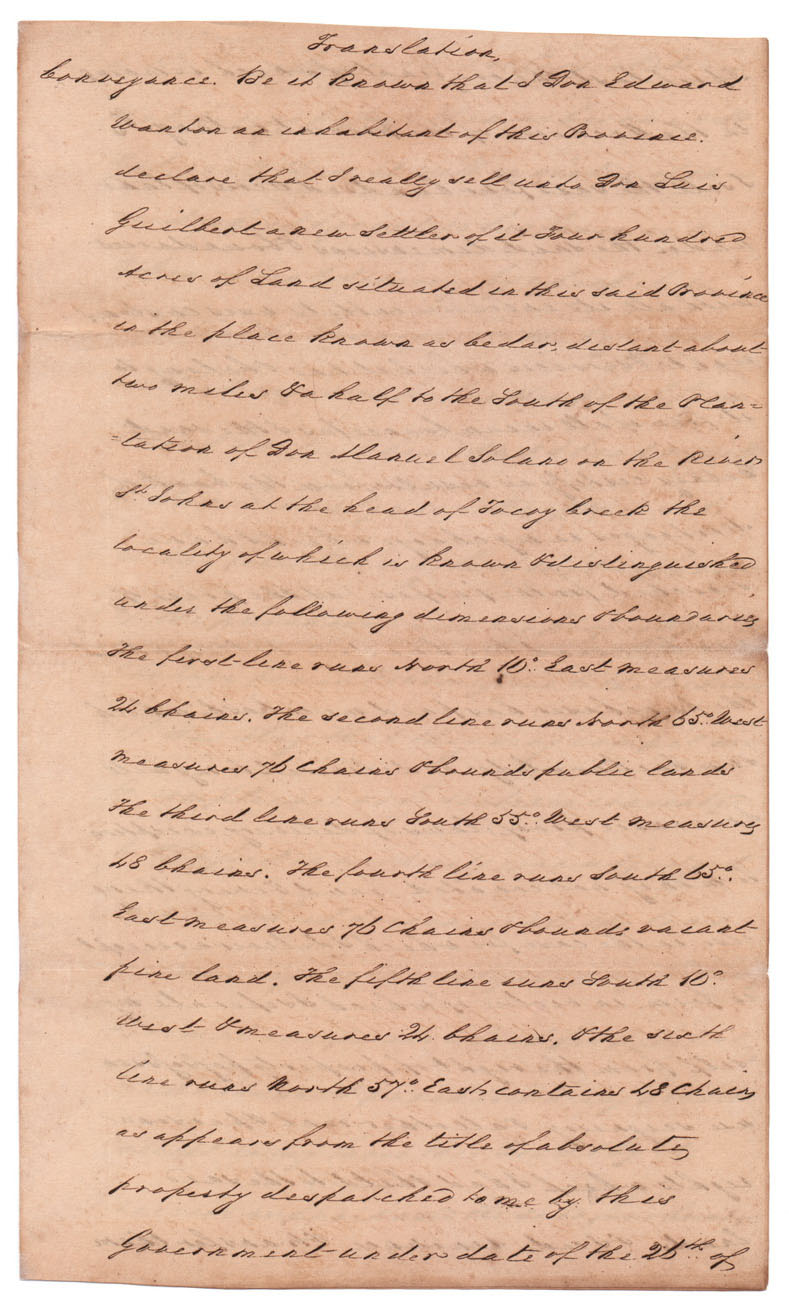 Translation,
Conveyance. Be it known that I Don Edward
Wanton an inhabitant of this Province.
declare that I really sell unto Don Luis
Guilbert a new Settler of it Four hundred
Acres of Land situated in this said Province
in the place known as Cedar, distant about
two miles & a half to the South of the Plan=
=tation of Don Manuel Solano on the River
St. Johns at the head of Tocoy Creek the
locality of which is known & distinguished
under the following dimensions & boundaries
The first line runs North 10°. East measures
24 Chains. The second line runs North 65°. West
measures 76 Chains & bounds public lands
The third line runs South 55°. West measures
48 Chains. The fourth line runs South 65°.
East measures 76 Chains & bounds vacant
pine land. The fifth line runs South 10°.
West & measures 24 Chains. & the sixth
line runs North 57°. East, contains 48 Chains
as appears from the title of absolute
property despatched to me by this
Government under date of the 26th of